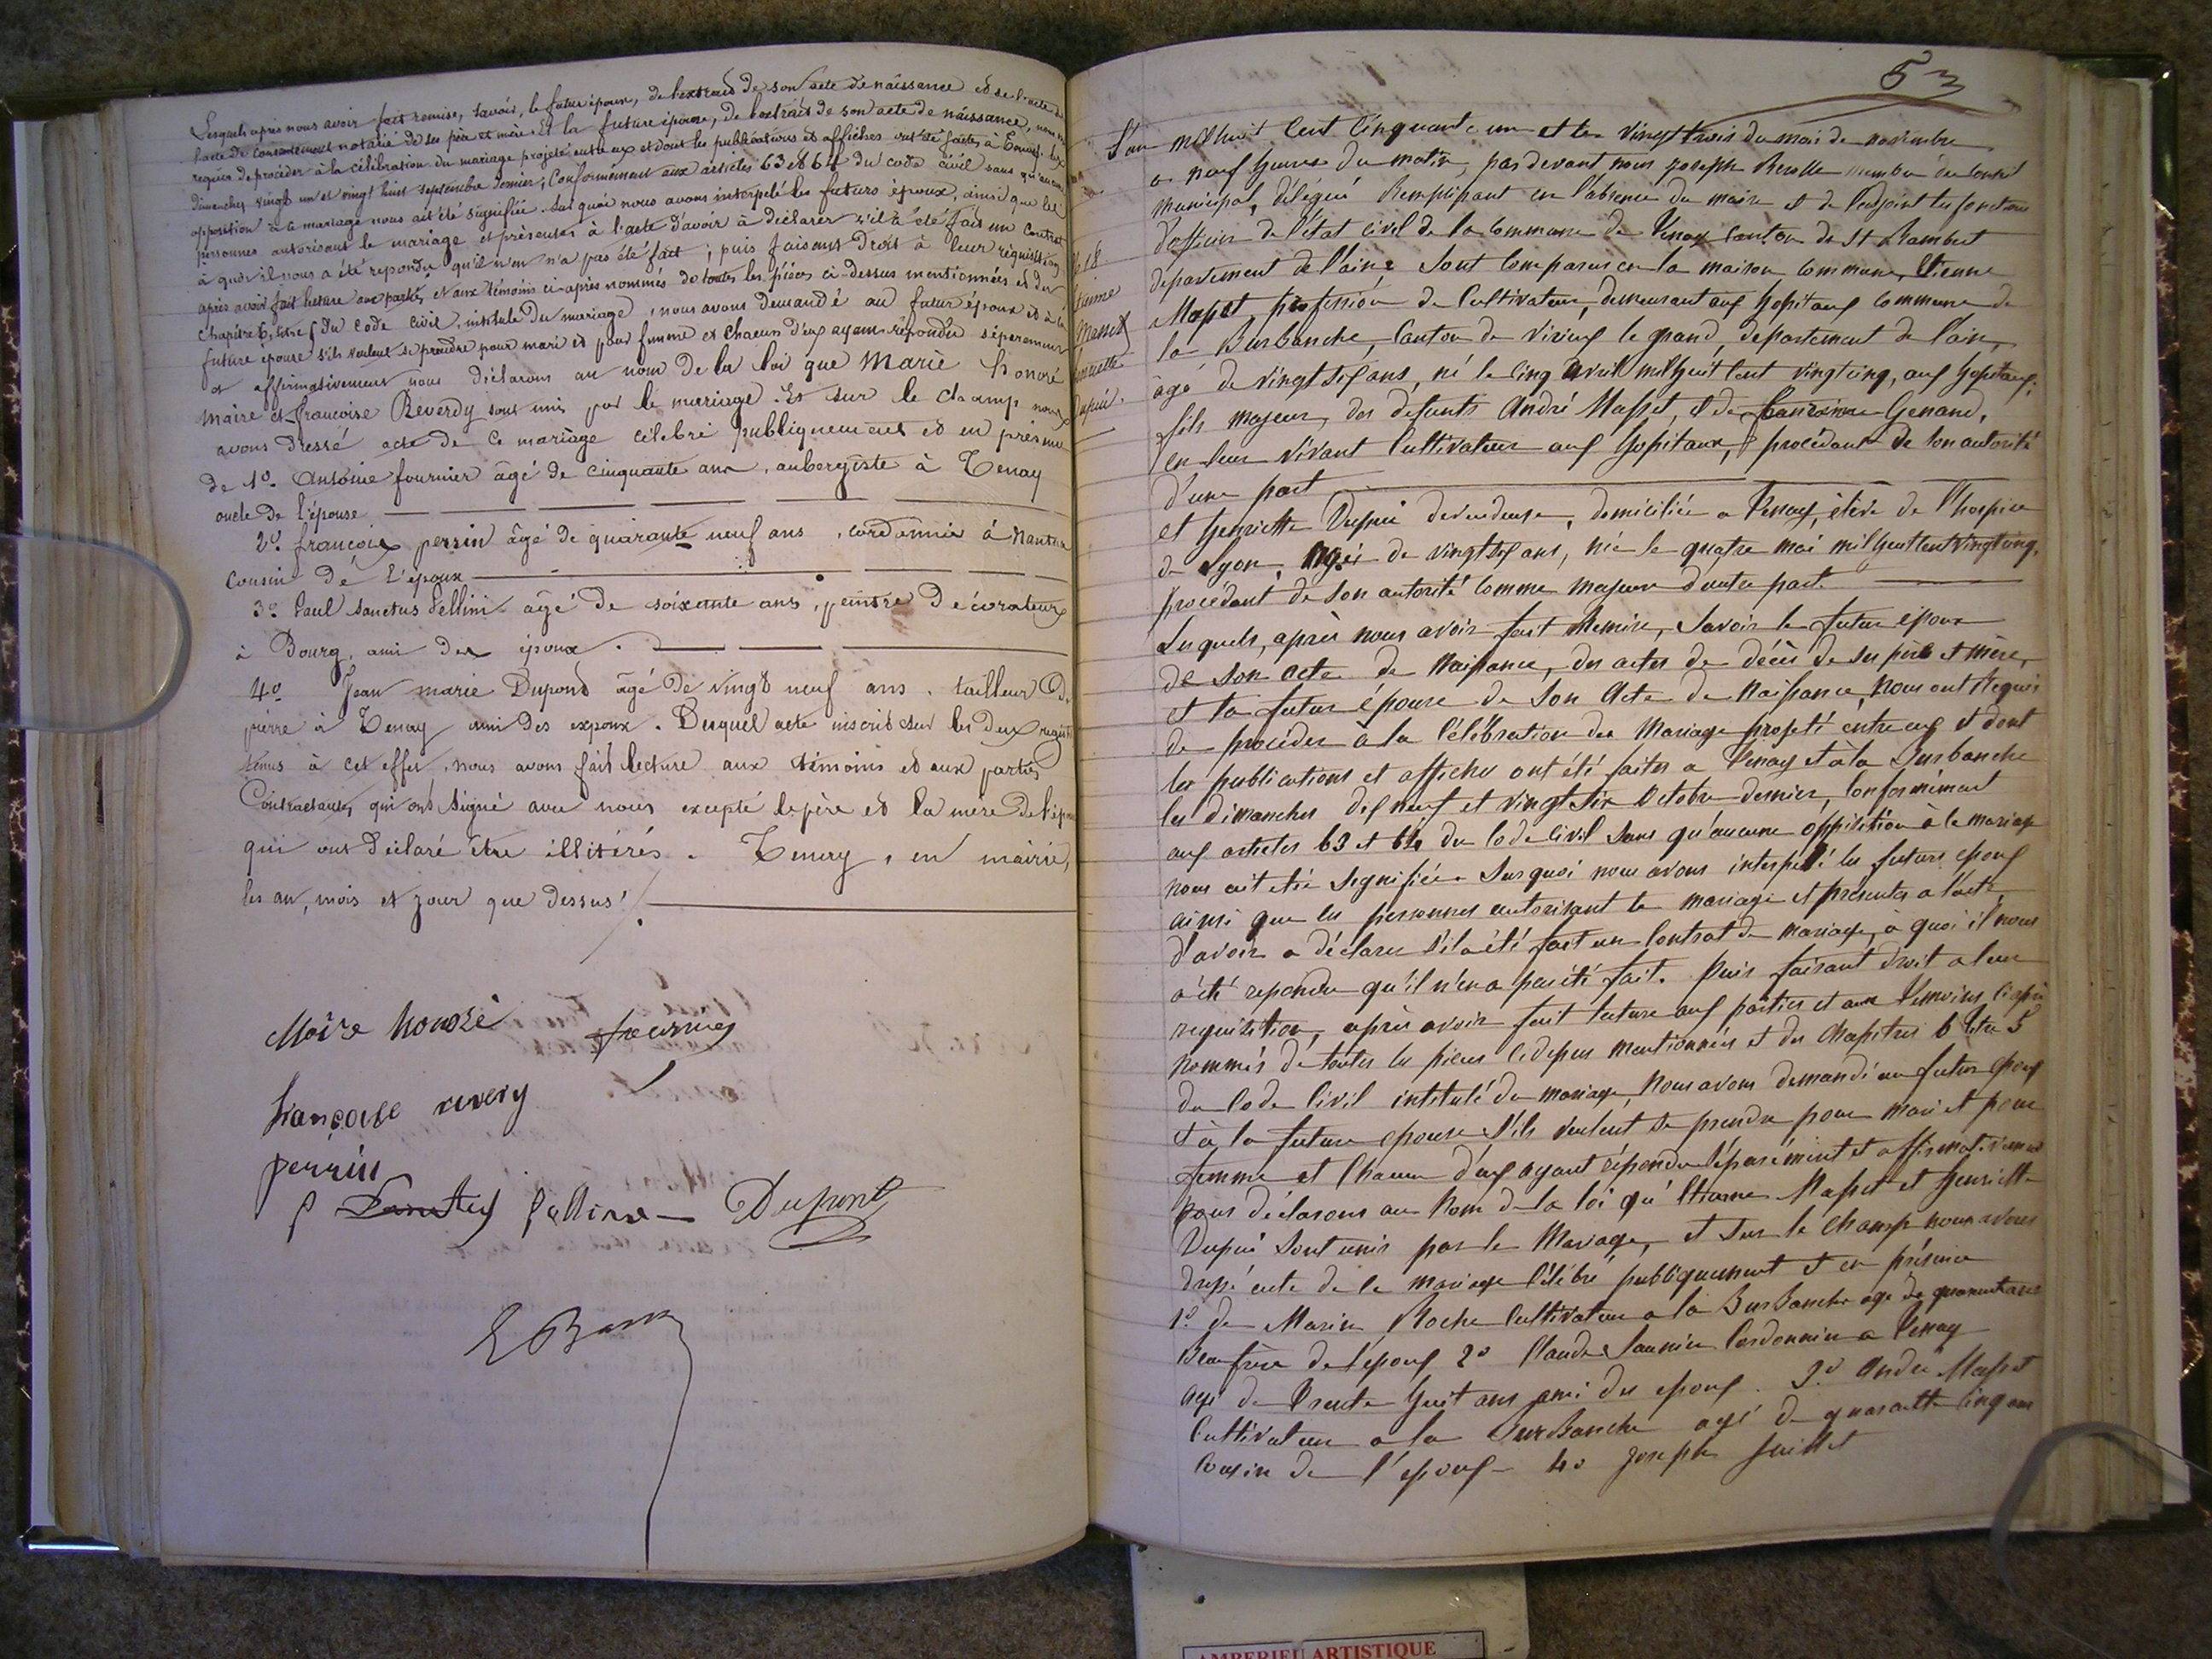 Lesquels après nous avoir fait remise, savoir, le futur époux, de l'extrait de son acte de naissance et de l'acte de
l'acte de consentement notarié de ses père et mère. Et la future épouse, de l'extrait de son acte de naissance, nous
requis de procéder à la célébration du mariage projeté entre eux et dont les publications et affiches ont été faites à Tenay, les
dimanches vingt un et vingt huit septembre dernier, conformément aux articles 63 et 64 du code civil sans qu'aucune
opposition à ce mariage nous ait été signifiée. Sur quoi nous avons interpelé les futurs époux, ainsi que les
personnes autorisant le mariage et présentes à l'acte d'avoir à déclarer s'il a été fait un contrat
à quoi il nous a été repondu qu'il n'en n'a pas été fait ; puis faisant droit à leur réquisition
après avoir fait lecture aux parties et aux témoins ci-après nommés de toutes les pièces ci-dessus mentionnées et du
chapitre 6, titre 5 du code civil, intitulé du mariage, nous avons demandé au futur époux et à la
future epouse s'ils veulent se prendre pour mari et pour femme et chacun d'eux ayant répondu séparement
et affirmativement nous déclarons au nom de la loi que Marie honoré
maire et françoise Reverdy sont unis par le mariage. Et sur le champ nous
avons dressé acte de ce mariage célébré publiquement et en présence
de 1º. Antoine fournier âgé de cinquante ans, aubergiste à Tenay
oncle de l'épouse
2º. françois perrin âgé de quarante neuf ans, cordonnier à Nantua
cousin de l'époux
3º Paul Sanctus Pellini âgé de soixante ans, peintre décorateur
à Bourg, ami des époux.
4º Jean marie Dupond âgé de vingt neuf ans. tailleur de
pierre à Tenay ami des expoux. Duquel acte inscrit sur les deux regist
tenus à cet effet, nous avons fait lecture aux témoins et aux parties
Contractantes, qui ont signé avec nous excepté le père et la mère de l'épouse
qui ont déclaré être illitérés. Tenay, en mairie,
les an, mois et jour que dessus ./.
Maire honoré fournier
françoise revery
perrin
P Sanctus Pellini Dupont
53
Nº 18
Etienne
Masset
henriette
Dupui.
L'an mil huit cent cinquante un et le vingt trois du mois de novembre
a neuf heures du matin, par devant nous Joseph membre du conseil
municipal, délégué Remplissant en l'absence du maire et de l'adjoint les fonctions
d'officier de l'état civil de la commune de Tenay canton de St Rambert
departement de l'ain, Sont Comparus en la maison commune, Etienne
Masset, profession de Cultivateur, demeurant aux hopitaux commune de
la Burbanche, Canton de Virieux le grand, departement de l'ain,
âgé de vingt six ans, né le cinq avril mil huit cent vingt cinq, aux hopitaux,
fils majeur, des defunts André Masset, et de Genand,
en leur vivant Cultivateur aux hopitaux, procédant de son autorité
d'une part
et henriette Dupui devendeuse, domiciliée a Tenay, élève de l'hospice
de Lyon, Agée de vingt six ans, née le quatre mai mil huit cent vingt cinq,
procédant de son autorité comme majeure d'autre part.
Lesquels, après nous avoir fait Remise, Savoir le futur époux
de son acte de Naissance, des actes de décès de ses père et mère,
et la future épouse de son Acte de Naissance, Nous ont Requis
de procéder à la Célébration du Mariage projeté entre eux et dont
les publications et affiches ont été faites a Tenay et à la Burbanche
les dimanches dix neuf et vingt six Octobre dernier, conformément
aux articles 63 et 64 du Code Civil Sans qu'aucune opposition à ce mariage
nous ait été Signifiée. Sur quoi nous avons interpellé les futurs epoux
ainsi que les personnes autorisant le mariage et présentes a l'acte
d'avoir a déclarer s'il a été fait un Contrat de mariage, à quoi il nous
a été repondu qu'il n'en a pas été fait. Puis faisant droit a leur
requisition, après avoir fait lecture aux parties et aux Témoins ci après
nommés de toutes les pieces cidessus mentionnées et du Chapitres 6 titre 5
du Code Civil intitulé du mariage, Nous avons demandé au futur epoux
et à la future epouse s'ils veulent se prendre pour mari et pour
femme et Chacun d'eux ayant répondu séparément et affirmativement
Nous déclarons au Nom de la loi qu'Etienne Masset et henriette
Dupui Sont unis par le Mariage, et Sur le champ nous avons
dressé acte de ce mariage Célébré publiquement et en présence
1º. de Marin Roche Cultivateur a la Burbanche age de quarante ans
Beaufrere de l'epoux 2º Claude Saunier Cordonnier a Tenay
agé de trente huit ans ami des epoux. 3º. André Masset
Cultivateur a la Burbanche agé de quarante cinq ans
Cousin de l'epoux 4º Joseph Juillet
AMBERIEU ARTISTIQUE